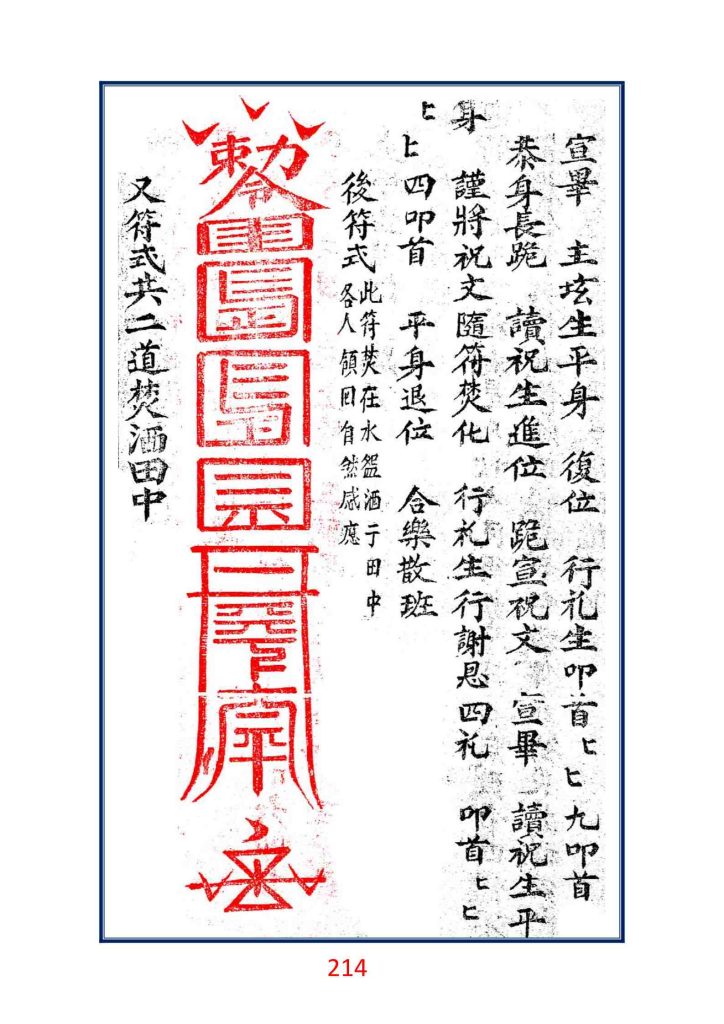 宣畢 主坛生平身 復位 行礼生叩首匕匕九叩首
恭身長跪 讀祝生進位 跪宣祝文 宣畢 讀祝生平
身 謹將祝文隨符焚化 行礼生行謝恩四礼 叩首匕匕
匕匕四叩首 平身退位 合樂散班
後符式 此符焚在水盌洒于田中
各人領回自然感應
勅令
又符式共二道焚洒田中
214